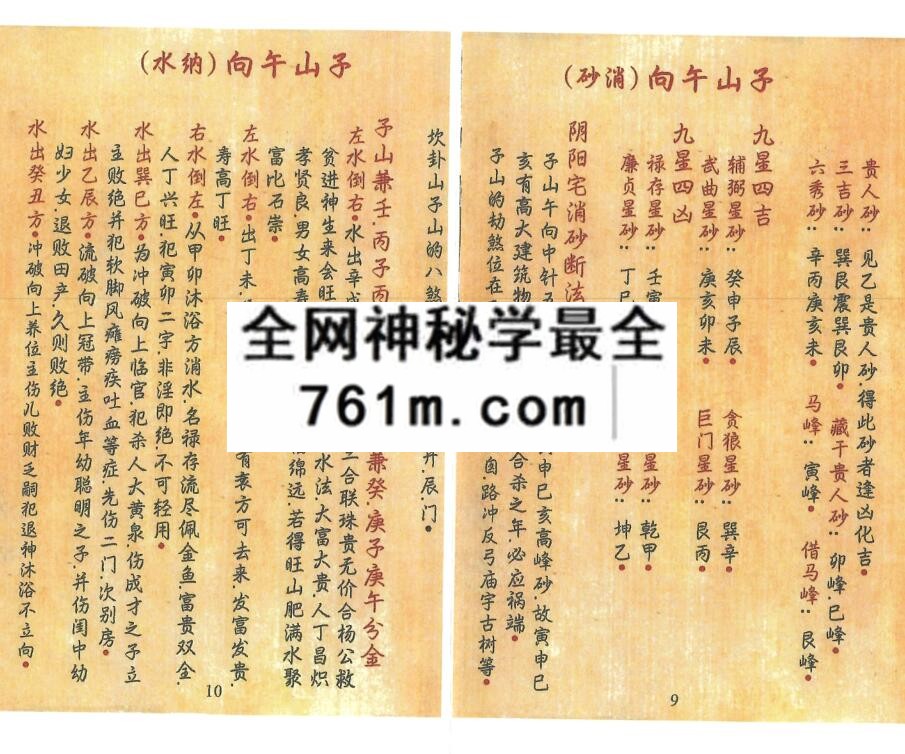 子山午向(消砂)
贵人砂:见乙是贵人砂.得此砂者逢凶化吉.
三吉砂:巽艮震巽艮卯. 藏干贵人砂:卯峰.巳峰.
六秀砂:辛丙庚亥未. 马峰:寅峰. 借马峰:艮峰.
九星四吉
辅弼星砂:癸申子辰. 贪狼星砂:巽辛.
武曲星砂:庚亥卯未. 巨门星砂:艮丙.
九星四凶
禄存星砂:壬寅 星砂:乾甲.
廉贞星砂:丁巳 星砂:坤乙.
阴阳宅消砂断法
子山午向中针 申巳亥高峰砂.故寅申巳
亥有高大建筑物 合杀之年.必应祸端.
子山的劫煞位在 囱.路.冲反弓庙宇古树等
9
子山午向(纳水)
坎卦山子山的八煞 并.辰门.
子山兼壬.丙子丙 兼癸.庚子庚午分金
左水倒右.水出辛 三合联珠贵无价合杨公救
贫进神生来会旺 水法大富大贵.人丁昌炽
孝贤良.男女高寿 绵远.若得旺山肥满水聚
富比石崇.
左水倒右.出丁未. 有衰方可去来.发富发贵.
寿高丁旺.
右水倒左.从甲卯沐浴方消水.名禄存流尽佩金鱼.富贵双全.
人丁兴旺.犯寅卯二字.非淫即绝.不可轻用.
水出巽巳方.为冲破向上临官.犯杀人大黄泉.伤成才之子立
主败绝并犯软脚风瘫痨疾吐血等症.先伤二门.次别房.
水出乙辰方.流破向上冠带.主伤年幼聪明之子.并伤闺中幼
妇少女.退败田产.久则败绝.
水出癸丑方.冲破向上养位主伤儿败财乏嗣犯退神沐浴不立向.
10
全网神秘学最全
761m.com